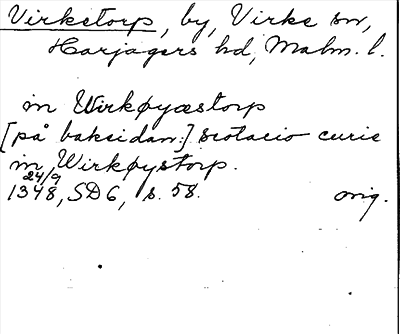 Virketorp, by, Virke sn,
Harjagers hd, Malm. l.
in Wirkøyæstorp
[på baksidan:] scotacio curie
in Wirkøystorp.
24/9
1348, SD6, s. 58. orig.